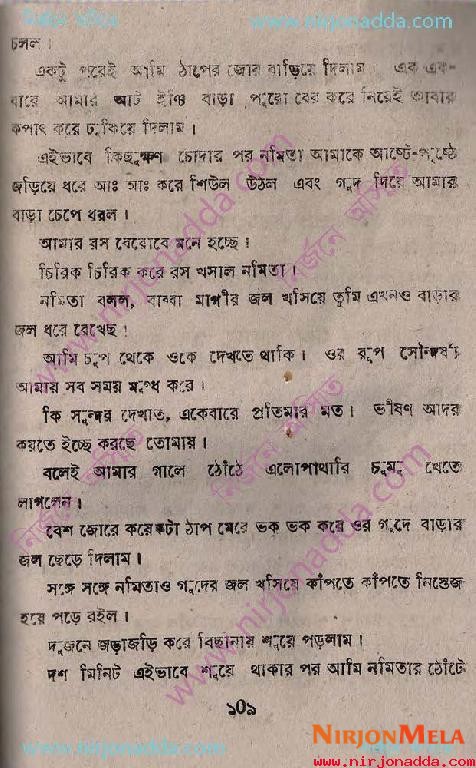 নির্জনে অসিতে
www.nirjonadda.com
চলল।
একটু পরেই আমি ঠাপের জোর বাড়িয়ে দিলাম। এক এক-
বারে আমার আট ইঞ্চি বাড়া পুরো বের করে নিয়েই আবার
কপাৎ করে ঢুকিয়ে দিলাম।
এইভাবে কিছুক্ষণ চোদার পর নমিতা আমাকে আষ্টে-পৃষ্ঠে
জড়িয়ে ধরে আঃ আঃ করে শিউল উঠল এবং গুদ দিয়ে আমার
বাড়া চেপে ধরল।
আমার রস বেরোবে মনে হচ্ছে।
চিরিক চিরিক করে রস খসাল নমিতা।
নমিতা বলল, বাব্বা মাগীর জল খসিয়ে তুমি এখনও বাড়ার
জল ধরে রেখেছ!
আমি চুপ থেকে ওকে দেখতে থাকি। ওর রূপ সৌন্দর্য্য
আমায় সব সময় মুগ্ধ করে।
কি সুন্দর দেখাত, একেবারে প্রতিমার মত। ভীষণ আদর
করতে ইচ্ছে করছে তোমায়।
বলেই আমার গালে ঠোঁঠে এলোপাথারি চুমু খেতে
লাগলেন।
বেশ জোরে কয়েকটা ঠাপ মেরে ভক ভক করে ওর গুদে বাড়ার
জল ছেড়ে দিলাম।
সঙ্গে সঙ্গে নমিতাও গুদের জল খসিয়ে কাঁপতে কাঁপতে নিস্তেজ
হয়ে পড়ে রইল।
দুজনে জড়াজড়ি করে বিছানায় শুয়ে পড়লাম।
দশ মিনিট এইভাবে শুয়ে থাকার পর আমি নমিতার ঠোঁটে
১০১
NIRJONMELA
www.nirjonadda.com
www.nirjonadda.com